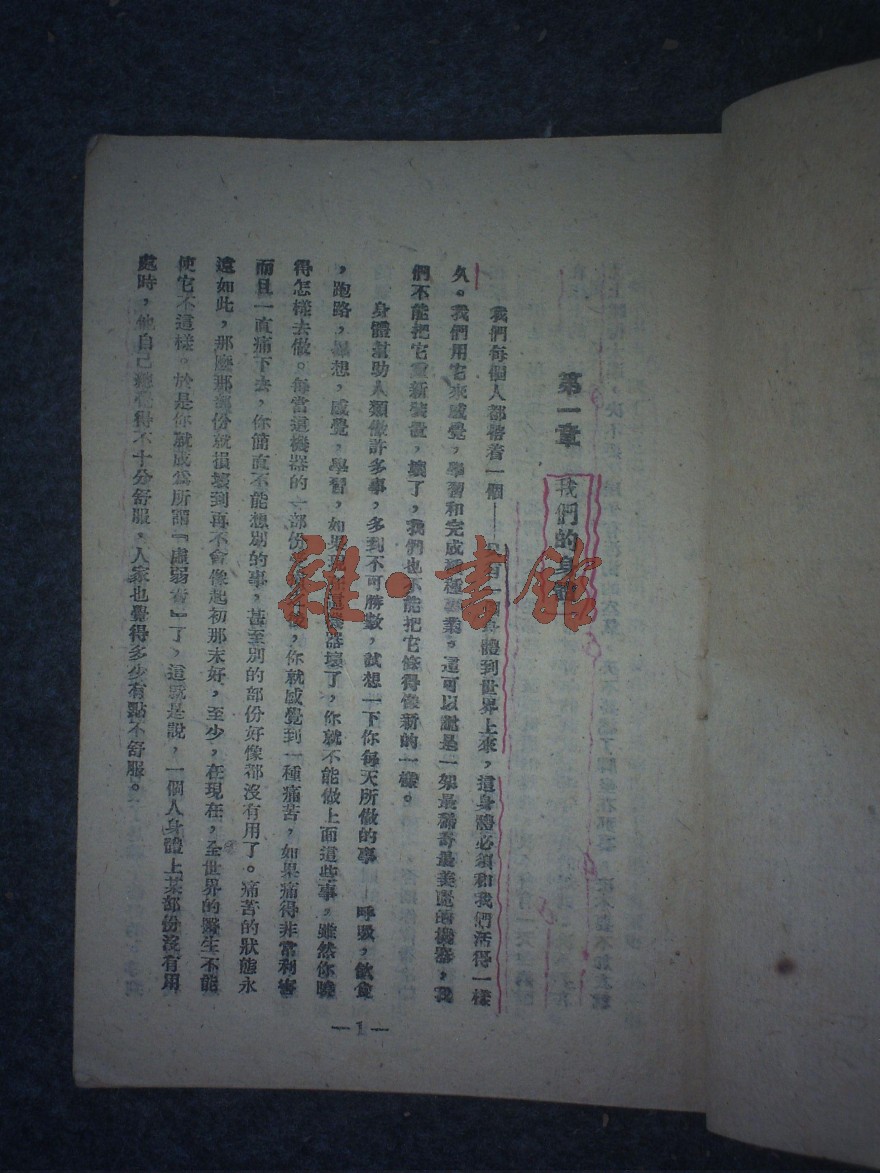 第一章　我們的身體
我們每個人都帶着一個——只有一個身體到世界上來，這身體必須和我們活得一樣
久。我們用它來感覺，學習和完成種種事業。這可以說是一架最稀奇最美麗的機器，我
們不能把它重新裝置，壞了，我們也不能把它修得像新的一樣。
身體幫助人類做許多事，多到不可勝數，試想一下你每天所做的事——呼吸，飲食
，跑路，思想，感覺，學習，如果現在這機器壞了，你就不能做上面這些事，雖然你曉
得怎樣去做。每當這機器的一部份之後，你就感覺到一種痛苦，如果痛得非常利害
而且一直痛下去，你簡直不能想別的事，甚至別的部份好像都沒有用了。痛苦的狀態永
遠如此，那麼那部份就損壞到再不會像起初那末好，至少，在現在，全世界的醫生不能
使它不這樣。於是你就成爲所謂『虛弱者』了，這就是說，一個人身體上某部份沒有用
處時，他自己總覺得不十分舒服，人家也覺得多少有點不舒服。
—1—
雜·書館